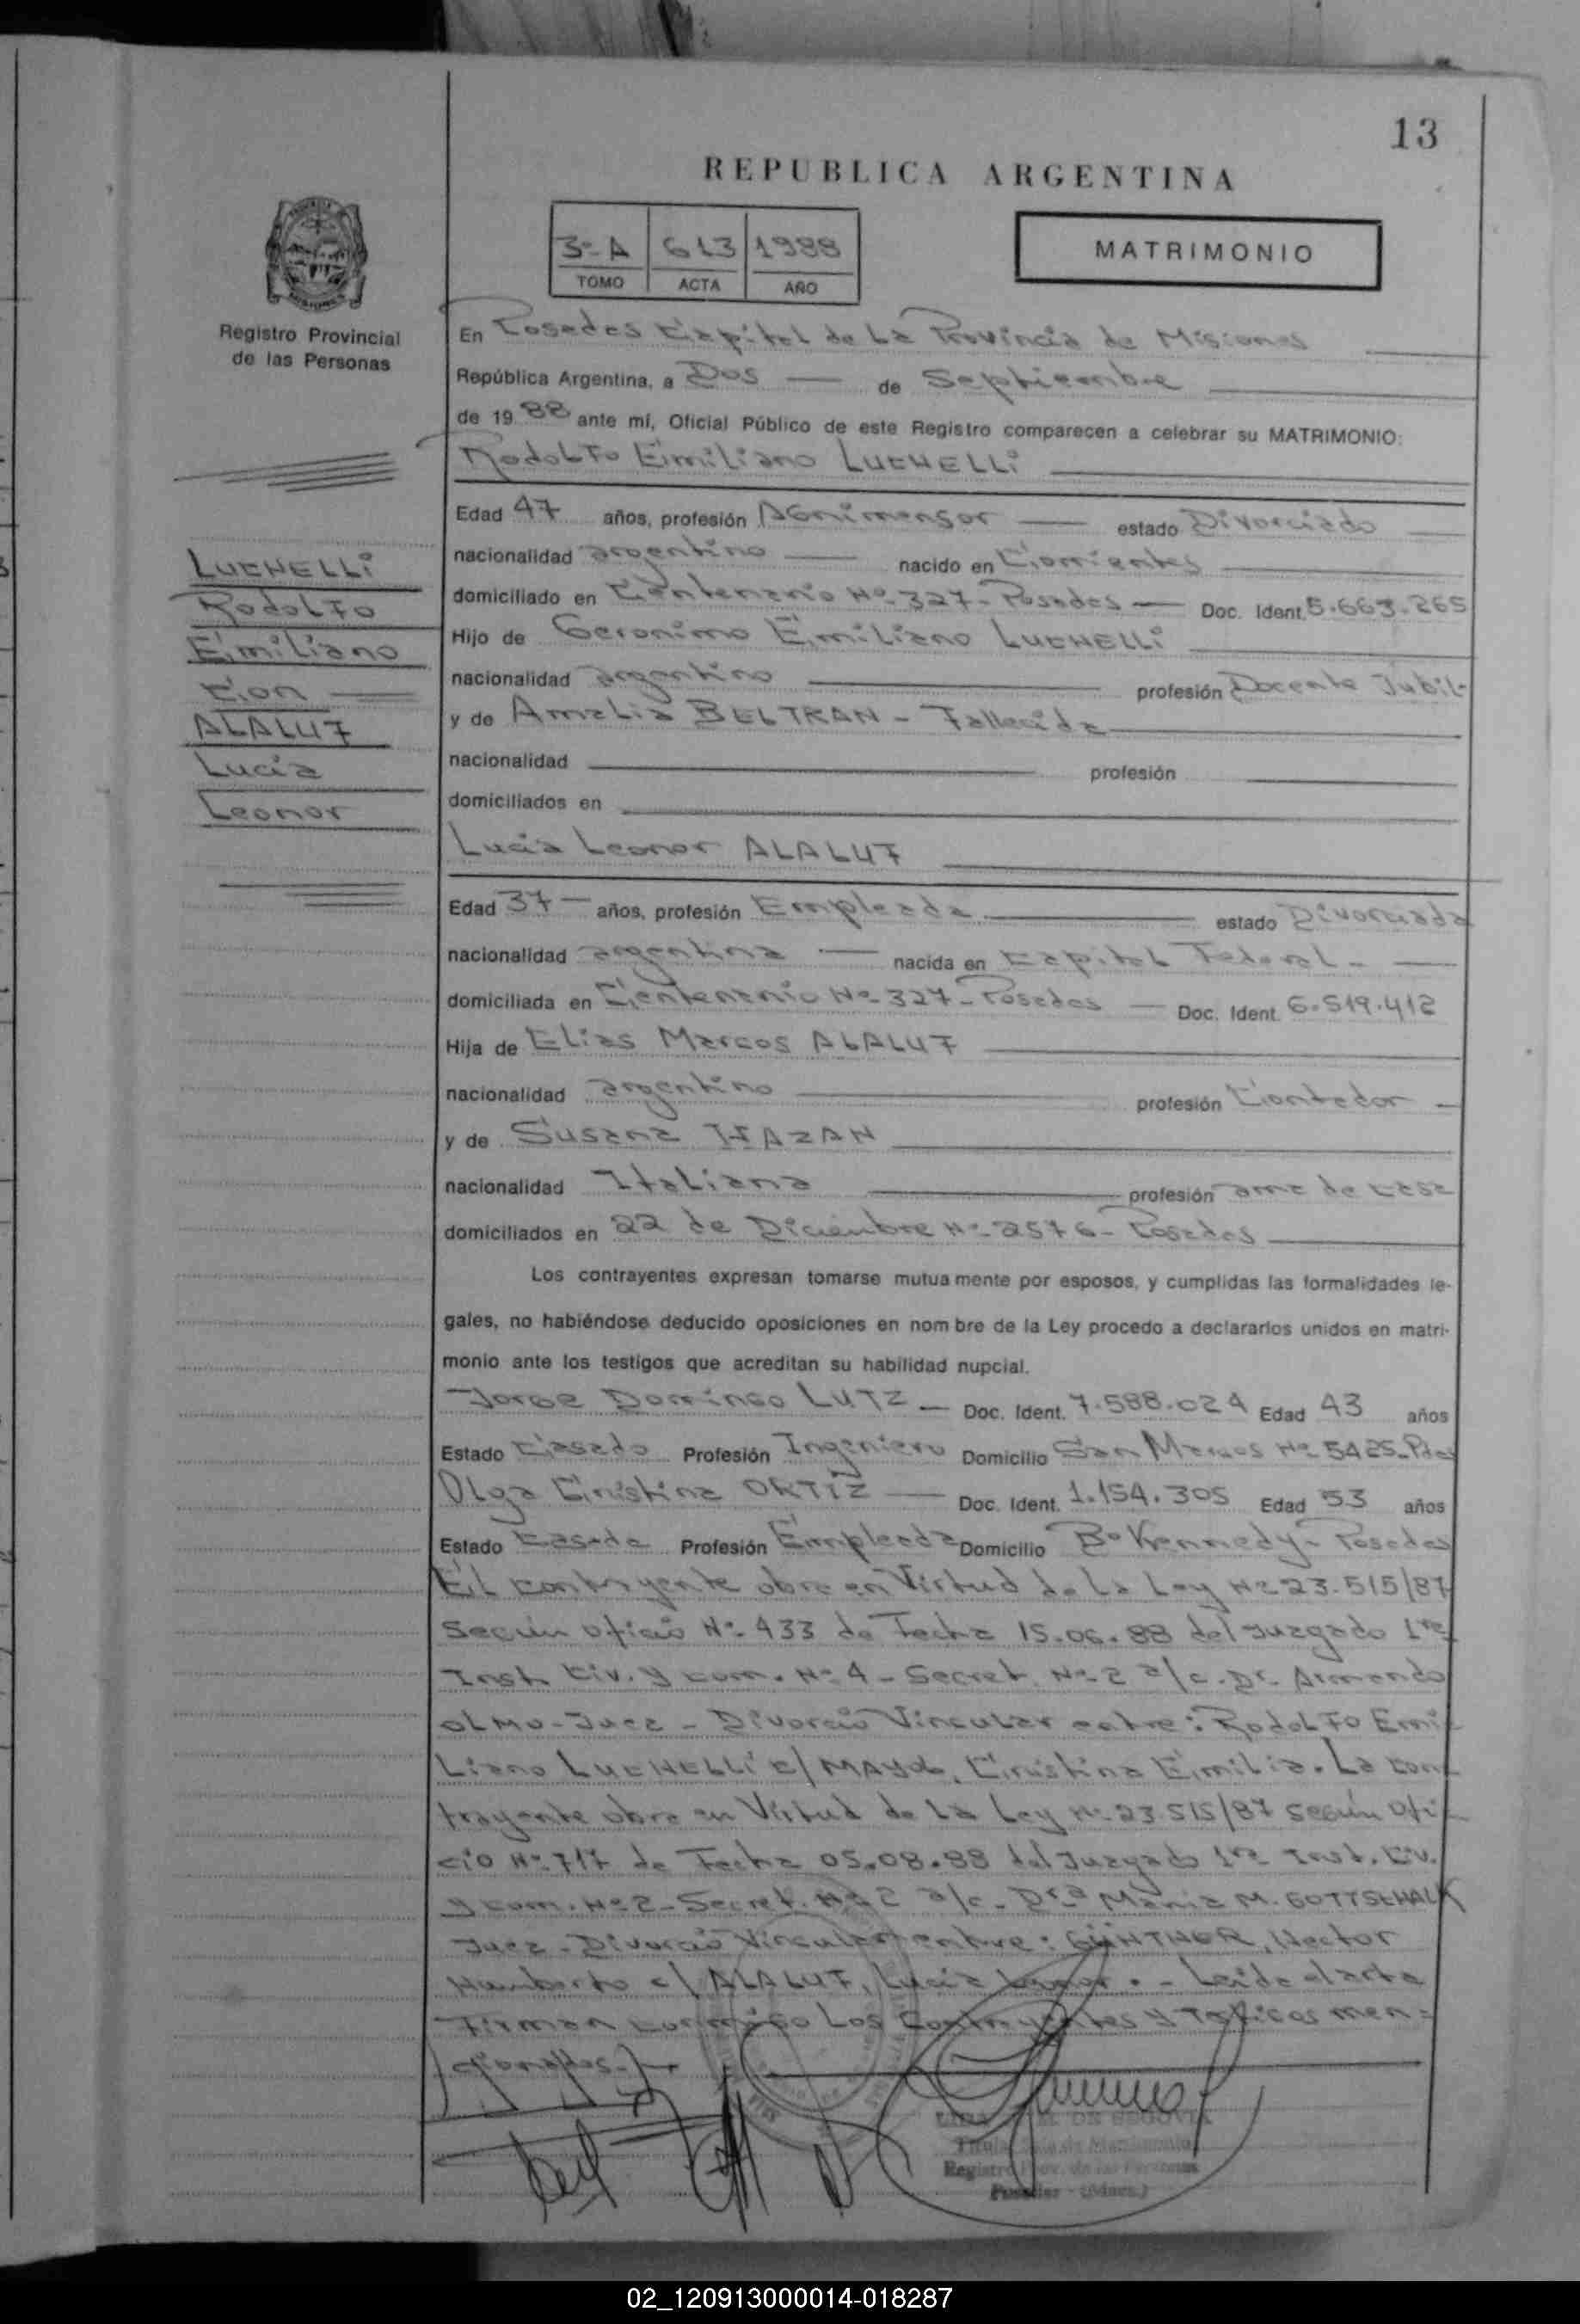 13
REPUBLICA ARGENTINA
3º-A 613 1988
TOMO ACTA AÑO
MATRIMONIO
Registro Provincial
de las Personas
En Posadas Capital de La Provincia de Misiones
República Argentina, a Dos de Septiembre
de 1988 ante mí, Oficial Público de este Registro comparecen a celebrar su MATRIMONIO:
Rodolfo Emiliano LUCHELLI
Edad 47 años, profesión Agrimensor estado Divorciado
nacionalidad argentino nacido en Corrientes
domiciliado en Centenario Nº-327-Posadas Doc. Ident. 5.663.265
Hijo de Geronimo Emiliano LUCHELLI
nacionalidad argentino profesión Docente Jubil-
y de Amalia BELTRAN - Fallecida
nacionalidad profesión
domiciliados en
LUCHELLI
Rodolfo
Emiliano
Con
ALALUF
Lucia
Leonor
Lucia Leonor ALALUF
Edad 37 años, profesión Empleada estado Divorciada
nacionalidad argentina nacida en Capital Federal-
domiciliada en Centenario Nº-327-Posadas Doc. Ident. 6.519.412
Hija de Elias Marcos ALALUF
nacionalidad argentino profesión Contador
y de Susana HAZAN
nacionalidad Italiana profesión ama de casa
domiciliados en 22 de Diciembre Nº-2576-Posadas
Los contrayentes expresan tomarse mutuamente por esposos, y cumplidas las formalidades le-
gales, no habiéndose deducido oposiciones en nombre de la Ley procedo a declararlos unidos en matri-
monio ante los testigos que acreditan su habilidad nupcial.
Jorge Domingo LUTZ Doc. Ident. 7.588.024 Edad 43 años
Estado Casado Profesión Ingeniero Domicilio San Marcos Nº-5425-Pdas
Olga Cristina ORTIZ Doc. Ident. 1.154.305 Edad 53 años
Estado Casada Profesión Empleada Domicilio Bº Kennedy-Posadas
El contrayente obra en Virtud de La Ley Nº23.515/87
Según oficio Nº-433 de Fecha 15.06.88 del Juzgado 1ra
Inst. Civ. y Com. Nº-4-Secret. Nº-2 a/c. Dr. Armando
OLMO-Juez-Divorcio Vincular entre: Rodolfo Emi-
Liano LUCHELLI c/ Cristina Emilia. La con-
trayente obra en Virtud de La Ley Nº-23.515/87 Según Ofi-
cio Nº-717 de Fecha 05.08.88 del Juzgado 1ra Inst. Civ.
y Com. Nº-2-Secret. Nº2 a/c-Dra Maria M. GOTTSCHALK
Juez-Divorcio Vincular entre: GÜNTHER, Hector
Humberto c/ ALALUF, Lucia Leonor.- Leida el acta
Firman conmigo Los Contrayentes y Testigos men=
cionados.-
DE SEGOVIA
Registro Prov. de las Personas
02_120913000014-018287